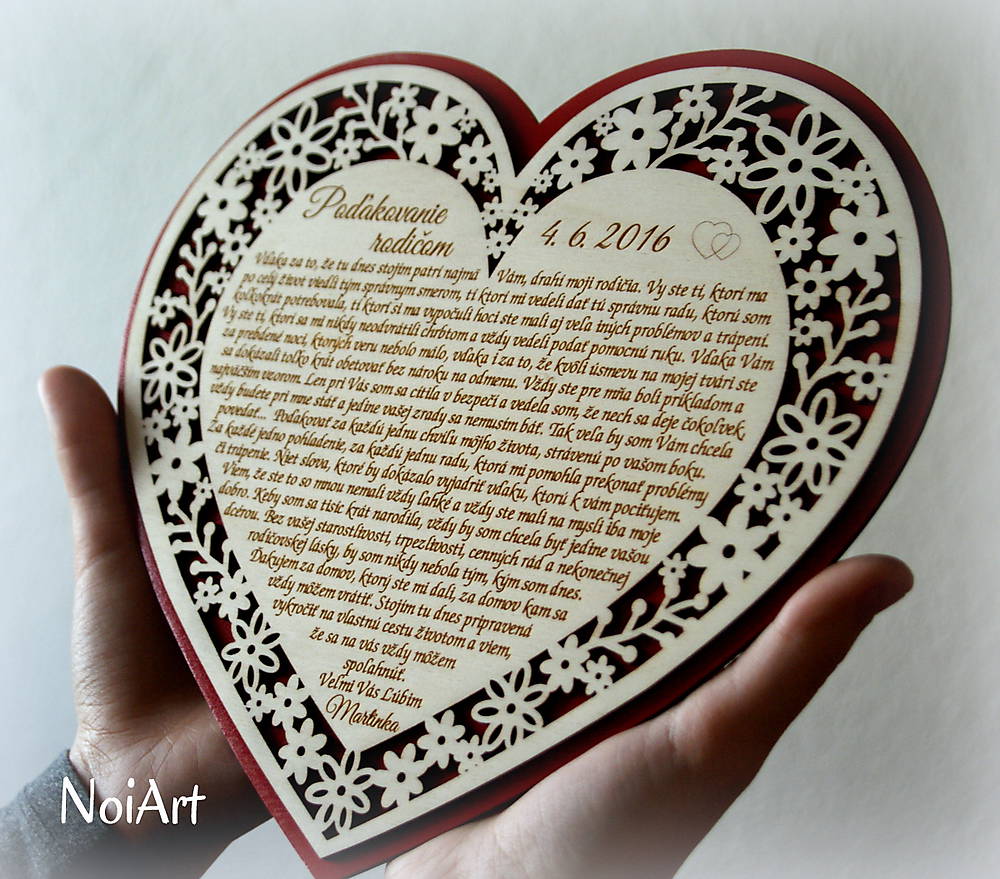 Poďakovanie
rodičom
4. 6. 2016
Vďaka za to, že tu dnes stojím patrí najmä Vám, drahí moji rodičia. Vy ste tí, ktorí ma
po celý život viedli tým správnym smerom, tí ktorí mi vedeli dať tú správnu radu, ktorú som
koľkokrát potrebovala, tí ktorí si ma vypočuli hoci ste mali aj veľa iných problémov a trápení.
Vy ste tí, ktorí sa mi nikdy neodvrátili chrbtom a vždy vedeli podať pomocnú ruku. Vďaka Vám
za prebdené noci, ktorých veru nebolo málo, vďaka i za to, že kvôli úsmevu na mojej tvári ste
sa dokázali toľko krát obetovať bez nároku na odmenu. Vždy ste pre mňa boli príkladom a
najväčším vzorom. Len pri Vás som sa cítila v bezpečí a vedela som, že nech sa deje čokoľvek,
vždy budete pri mne stáť a jedine vašej zrady sa nemusím báť. Tak veľa by som Vám chcela
povedať... Poďakovať za každú jednu chvíľu môjho života, strávenú po vašom boku.
Za každé jedno pohladenie, za každú jednu radu, ktorá mi pomohla prekonať problémy
či trápenie. Niet slova, ktoré by dokázalo vyjadriť vďaku, ktorú k vám pociťujem.
Viem, že ste to so mnou nemali vždy ľahké a vždy ste mali na mysli iba moje
dobro. Keby som sa tisíc krát narodila, vždy by som chcela byť jedine vašou
dcérou. Bez vašej starostlivosti, trpezlivosti, cenných rád a nekonečnej
rodičovskej lásky, by som nikdy nebola tým, kým som dnes.
Ďakujem za domov, ktorý ste mi dali, za domov kam sa
vždy môžem vrátiť. Stojím tu dnes pripravená
vykročiť na vlastnú cestu životom a viem,
že sa na vás vždy môžem
spoľahnúť.
Veľmi Vás Ľúbim
Martinka
NoiArt